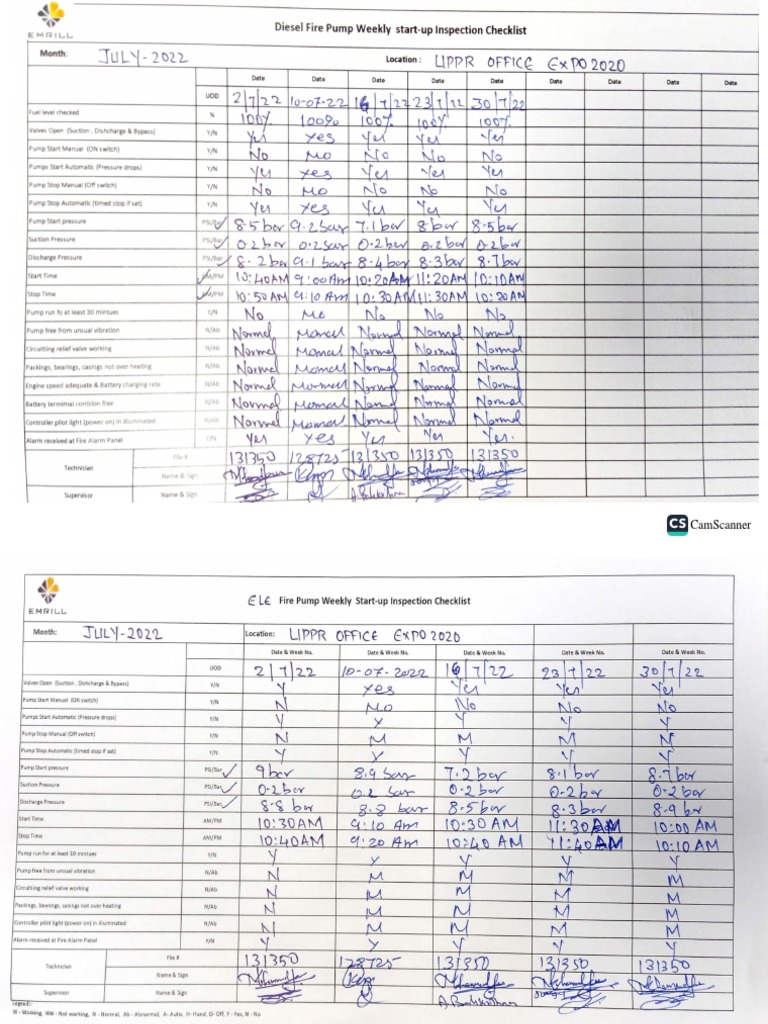 EMRILL
Diesel Fire Pump Weekly start-up Inspection Checklist
Month: JULY-2022 Location : LIPPR OFFICE EXPO2020
Date Date Date Date Date Date Date Date
UOD 2/7/22 10-07-22 16/7/22 23/7/22 30/7/22
Fuel level checked % 100% 100% 100% 100% 100%
Valves Open (Suction , Dishcharge & Bypass) Y/N Yes Yes Yes Yes Yes
Pump Start Manual (ON switch) Y/N No No No No No
Pumps Start Automatic (Pressure drops) Y/N Yes Yes Yes Yes Yes
Pump Stop Manual (Off switch) Y/N No No No No No
Pump Stop Automatic (timed stop if set) Y/N Yes Yes Yes Yes Yes
Pump Start pressure PSI/Bar ✓ 8.5bar 9.2bar 7.1bar 8bar 8.5bar
Suction Pressure PSI/Bar ✓ 0.2bar 0.2bar 0.2bar 0.2bar 0.2bar
Discharge Pressure PSI/Bar ✓ 8.2bar 9.1bar 8.4bar 8.3bar 8.7bar
Start Time AM/PM 10:40AM 9:00AM 10:20AM 11:20AM 10:10AM
Stop Time AM/PM 10:50AM 9:10Am 10:30AM 11:30AM 10:20AM
Pump run fo at least 30 mintues Y/N No No No No No
Pump free from unusual vibration N/Ab Normel Normel Normel Normel
Circuitling relief valve working N/Ab Normel Normel Normel Normel
Packings, bearings, casings not over heating N/Ab Normel Normel Normel Normel
Engine speed adequate & Battery charging rate N/Ab Normel Normel Normel Normel
Battery termimal corrision free N/Ab Normel Normel Normel
Controller pilot light (power on) in illuminated N/Ab Normel Normel Normel Normel
Alarm received at Fire Alarm Panel Y/N Yes Yes Yes Yes Yes.
Technician File # 131350 128725 131350 131350 131350
Name & Sign
Supervisor Name & Sign
CS CamScanner
EMRILL
ELE Fire Pump Weekly Start-up Inspection Checklist
Month: JULY-2022 Location: LIPPR OFFICE EXPO2020
Date & Week No. Date & Week No. Date & Week No. Date & Week No. Date & Week No.
UOD 2/7/22 10-07-2022 16/7/22 23/7/22 30/7/22
Valves Open (Suction , Dishcharge & Bypass) Y/N Y Yes Yes Yes Yes
Pump Start Manual (ON switch) Y/N N No No No No
Pumps Start Automatic (Pressure drops) Y/N Y Y Y Y Y
Pump Stop Manual (Off switch) Y/N N N N N N
Pump Stop Automatic (timed stop if set) Y/N Y Y Y Y Y
Pump Start pressure PSI/Bar ✓ 9bar 8.9 bar 7.2bar 8.1bar 8.7bar
Suction Pressure PSI/Bar ✓ 0.2bar 0.2 bar 0.2bar 0.2bar 0.2bar
Discharge Pressure PSI/Bar ✓ 8.8bar 8.8 bar 8.5bar 8.3bar 8.9bar
Start Time AM/PM 10:30AM 9:10 Am 10:30AM 11:30AM 10:00AM
Stop Time AM/PM 10:40AM 9:20 Am 10:40AM 11:40AM 10:10AM
Pump run for at least 10 mintues Y/N Y Y Y Y Y
Pump free from unusual vibration N/Ab N N N N N
Circutling relief valve working N/Ab N N N N N
Packings, bearings, casings not over heating N/Ab N N N N N
Controller pilot light (power on) in illuminated N/Ab N N N N N
Alarm received at Fire Alarm Panel Y/N Y Y Y Y Y
Technician File # 131350 128725 131350 131350 131350
Name & Sign
Supervisor Name & Sign
Legend:-
W - Working, NW - Not working, N - Normal, Ab - Abnormal, A- Auto, H- Hand, O- Off, Y - Yes, N - No